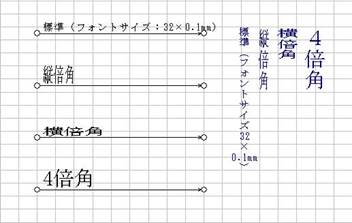 標準（フォントサイズ：32×0.1mm）
縦倍角
横倍角
4倍角
4倍角
横倍角
縦倍角
標準（フォントサイズ32×0.1mm）